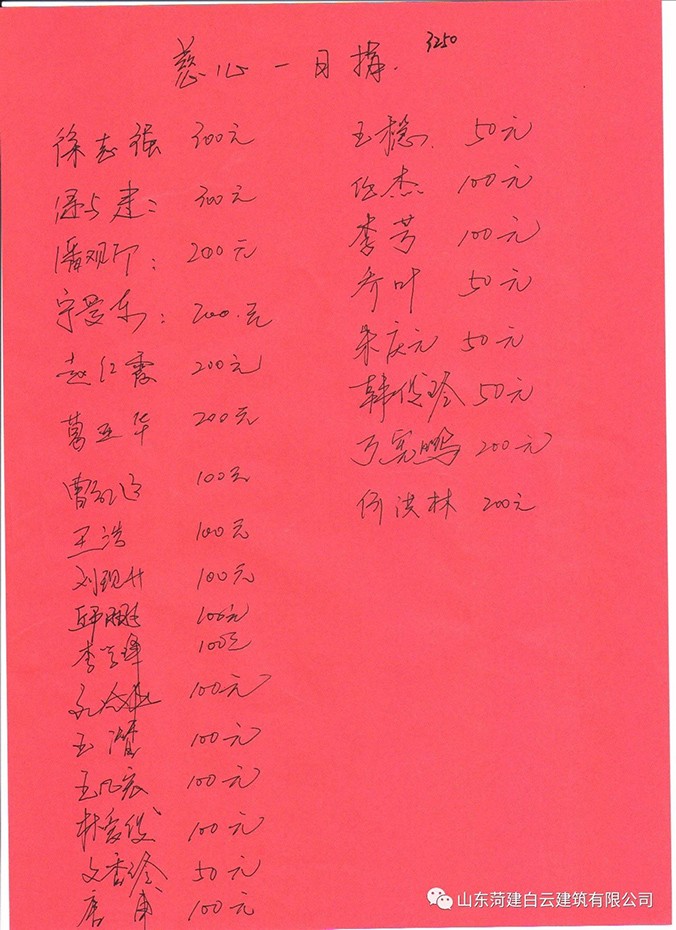 慈心一日捐. 3250
徐志强 300元
建: 300元
潘观印: 200元
宁爱东: 200.元
赵红霞 200元
葛亚华 200元
曹 100元
王浩 100元
刘现升 100元
邱鹏 100元
李学锋 100元
100元
王潜 100元
王凡宏 100元
林爱俊 100元
文香玲 50元
唐甫 100元
王稳. 50元
任杰 100元
李芳 100元
乔叶 50元
朱庆元 50元
韩俊玲 50元
丁宪鹏 200元
何洪林 200元
山东菏建白云建筑有限公司